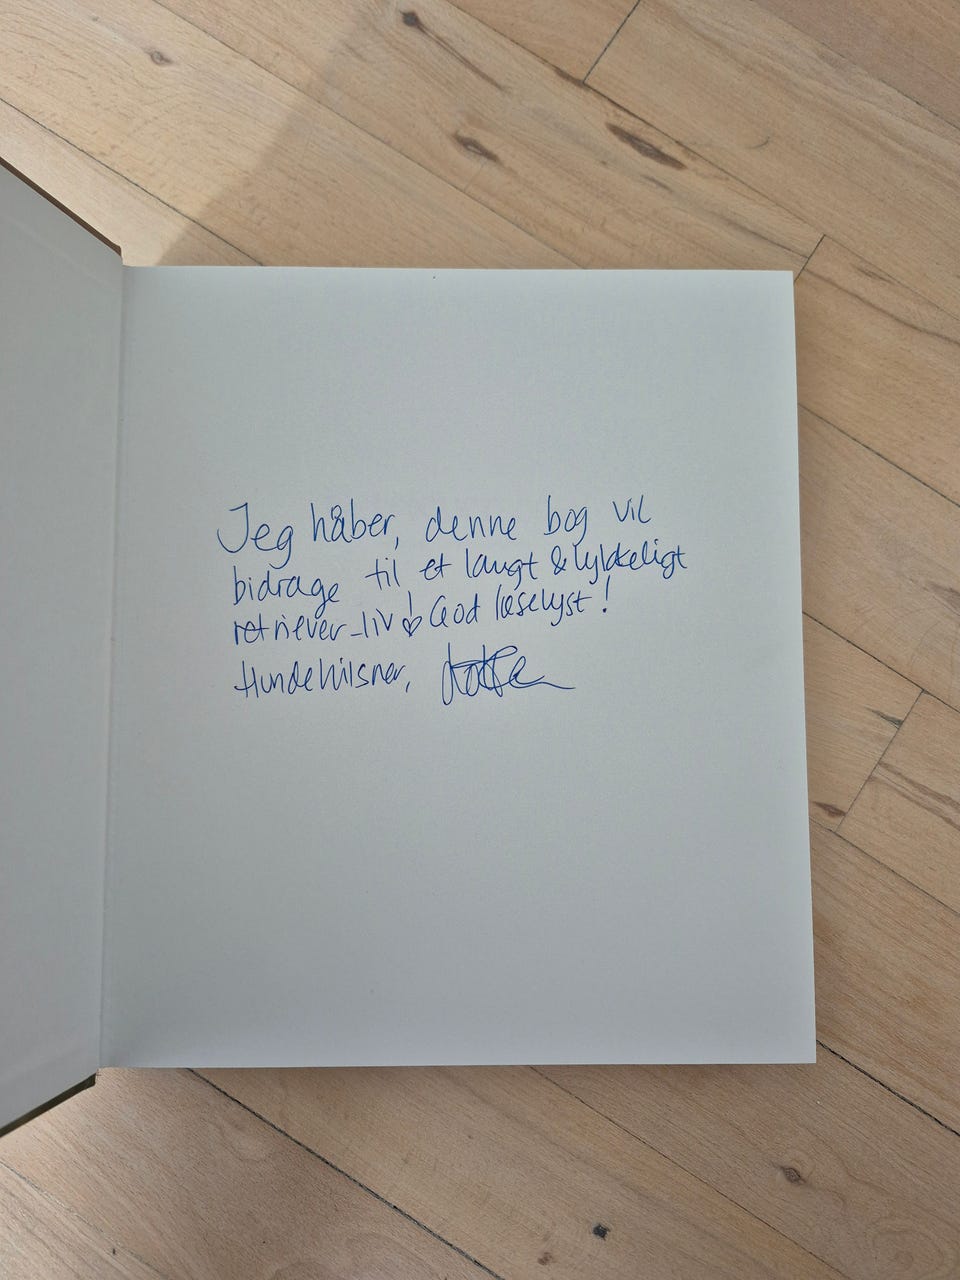 Jeg håber, denne bog vil
bidrage til et langt & lykkeligt
retriever-liv! God læselyst!
Hundehilsner,